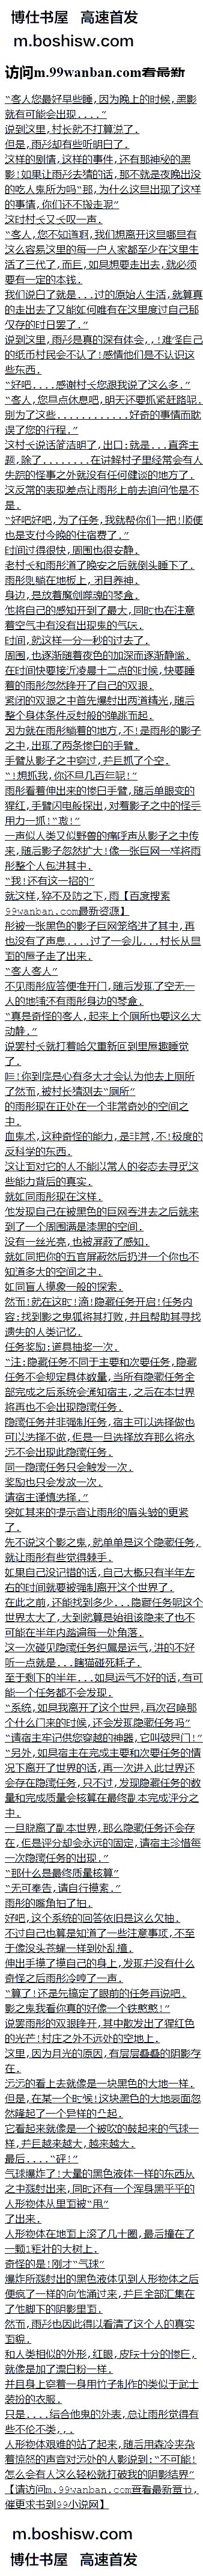 博仕书屋 高速首发
m.boshisw.com
访问m.99wanban.com查看最新
“客人您最好早些睡,因为晚上的时候,黑影
就有可能会出现....”
说到这里,村长就不打算说了.
但是,雨彤却有些听明白了.
这样的剧情,这样的事件,还有那神秘的黑
影!如果让雨彤去猜的话,那不就是夜晚出没
的吃人鬼所为吗“那,为什么这里出现了这样
的事情,你们还不挽走呢”
这时村长又长叹一声.
“客人,您不知道啊,我们想离开这里哪里有
这么容易这里的每一户人家都至少在这里生
活了三代了,而且,如果想要走出去,就必须
要有一定的本钱.
我们说白了就是...过的原始人生活,就算真
的走出去了又能如何唯有在这里度过自己那
仅存的时日罢了.”
说到这里,雨彤是真的深有体会,,!难怪自己
的纸币村民会不认了!感情他们是不认识这
些东西.
“好吧....感谢村长您跟我说了这么多.”
“客人,您早点休息吧,明天还要抓紧赶路呢.
别为了这些............好奇的事情而耽
误了您的行程.”
这村长说话简洁明了,出口:就是...直奔主
题,除了........在讲解村子里经常会有人
失踪的怪事之外就没有任何健谈的地方了.
这反常的表现差点让雨彤上前去追问他是不
是.
“好吧好吧,为了任务,我就帮你们一把!顺便
也是支付今晚的住宿费了.”
时间过得很快,周围也很安静.
老村长和雨彤道了晚安之后就倒头睡下了.
雨彤则躺在地板上,闭目养神.
身边,是放着魔剑摩魂的琴盒.
他将自己的感知开到了最大,同时也在注意
着空气中有没有出现鬼的气味.
时间,就这样一分一秒的过去了.
周围,也逐渐随着夜色的加深而逐渐静谧.
在时间快要接近凌晨十二点的时候,快要睡
着的雨彤忽然睁开了自己的双眼.
紧闭的双眼之中首先爆射出两道精光,随后
整个身体条件反射般的弹跳而起.
因为就在雨彤躺着的地方,不!是雨彤的影子
之中,出现了两条惨白的手臂.
手臂从影子之中穿过,并且抓了个空.
“!想抓我,你还早几百年呢!”
雨彤看着伸出来的惨白手臂,随后单眼变的
猩红,手臂闪电般探出,对着影子之中的怪手
用力一抓!“嗷!”
一声似人类又似野兽的痛呼声从影子之中传
来,随后影子忽然扩大!像一张巨网一样将雨
彤整个人包进其中.
“我!还有这一招的”
就这样,猝不及防之下,雨【百度搜索
99wanban.com最新资源】
彤被一张黑色的影子巨网笼络进了其中,再
也没有了声息....过了一会儿...村长从里
面的屋子走了出来.
“客人客人”
不见雨彤应答便推开门,随后发现了空无一
人的地铺还有雨彤身边的琴盒.
“真是奇怪的客人,起来上个厕所也要这么大
动静.”
说罢村长就打着哈欠重新回到里屋趣睡觉
了.
喂!你到底是心有多大才会认为他去上厕所
了然而,被村长猜测去“厕所”
的雨彤现在正处在一个非常奇妙的空间之
中.
血鬼术,这种奇怪的能力,是非常,不!极度的
反科学的东西.
这让面对它的人不能以常人的姿态去寻觅这
些能力背后的真实.
就如同雨彤现在这样.
他发现自己在被黑色的巨网吞进去之后就来
到了一个周围满是漆黑的空间.
没有一丝光亮,也被屏蔽了感知.
就如同把你的五官屏蔽然后扔进一个你也不
知道多大的空间之中.
如同盲人摸象一般的探索.
然而!就在这时!滴!隐藏任务开启!任务内
容:找到影之鬼狐将其打败,并且帮助其寻找
遗失的人类记忆.
任务奖励:道具抽奖一次.
“注:隐藏任务不同于主要和次要任务,隐藏
任务不会规定具体数量,当所有隐藏任务全
部完成之后系统会通知宿主,之后在本世界
将再也不会出现隐藏任务.
隐藏任务并非强制任务,宿主可以选择做也
可以选择不做,但是一旦选择放弃那么将永
远不会出现此隐藏任务.
同一隐藏任务只会触发一次.
奖励也只会发放一次.
请宿主谨慎选择.”
突如其来的提示音让雨彤的眉头皱的更紧
了.
先不说这个影之鬼,就单单是这个隐藏任务,
就让雨彤有些觉得棘手.
如果自己没记错的话,自己大概只有半年左
右的时间就要被强制离开这个世界了.
在此之前,还能找到多少...隐藏任务呢这个
世界太大了,大到就算是始祖该隐来了也不
可能在半年内踏遍每一处角落.
这一次碰见隐藏任务纯属是运气,讲的不好
听一点就是...瞎猫碰死耗子.
至于剩下的半年...如果运气不好的话,有可
能一个任务都不会发现.
“系统,如果我离开了这个世界,再次召唤那
个什么门来的时候,还会发现隐藏任务吗”
“请宿主牢记供您穿越的神器,它叫破界门!”
“另外,如果宿主在完成主要和次要任务的情
况下离开了世界的话,再一次进入此世界还
会存在隐藏任务,只不过,发现隐藏任务的数
量和完成质量会核算在最终副本完成评分之
中.
一旦脱离了副本世界,那么隐藏任务还会存
在,但是评分却会永远的固定,请宿主珍惜每
一次隐藏任务的出现.”
“那什么是最终质量核算”
“无可奉告,请自行摸索.”
雨彤的嘴角抽了抽.
好吧,这个系统的回答依旧是这么欠抽.
不过自己也算是知道了一些注意事项,不至
于像没头苍蝇一样到处乱撞.
伸出手摸了摸自己的身上,发现并没有什么
奇怪之后雨彤冷哼了一声.
“算了!还是先搞定了眼前的任务再说吧.
影之鬼我看你真的好像一个铁憨憨!”
说罢雨彤的双眼睁开,其中散发出了猩红色
的光芒!村庄之外不远处的空地上.
这里,因为月光的原因,有层层叠叠的阴影存
在.
远远的看上去就像是一块黑色的大地一样.
但是,在某一个时候!这块黑色的大地表面忽
然隆起了一个异样的凸起.
它看起来就像是一个被吹的鼓起来的气球一
样,并且越来越大,越来越大.
最后....“砰!”
气球爆炸了!大量的黑色液体一样的东西从
之中溅射出来,同时还有一个浑身黑乎乎的
人形物体从里面被“甩”
了出来.
人形物体在地面上滚了几十圈,最后撞在了
一颗粗壮的大树上.
奇怪的是!刚才“气球”
爆炸所溅射出的黑色液体见到人形物体之后
便疯了一样的向他涌过来,并且全部汇集在
了他脚下的阴影里面.
然而,雨彤也因此得以看清了这个人的真实
面貌.
和人类相似的外形,红眼,皮肤十分的惨白,
就像是加了漂白粉一样.
并且身上穿着一身用竹子制作的类似于武士
装扮的衣服.
只是....结合他鬼的外表,总让雨彤觉得有
些不伦不类,,.
人形物体艰难的站了起来,随后用森冷夹杂
着惊怒的声音对远处的人影说到:“不可能!
怎么会有人这么轻松就打破我的阴影结界”
【请访问m.99wanban.com查看最新章节,
催更求书到99小说网】
m.boshisw.com
博仕书屋 高速首发